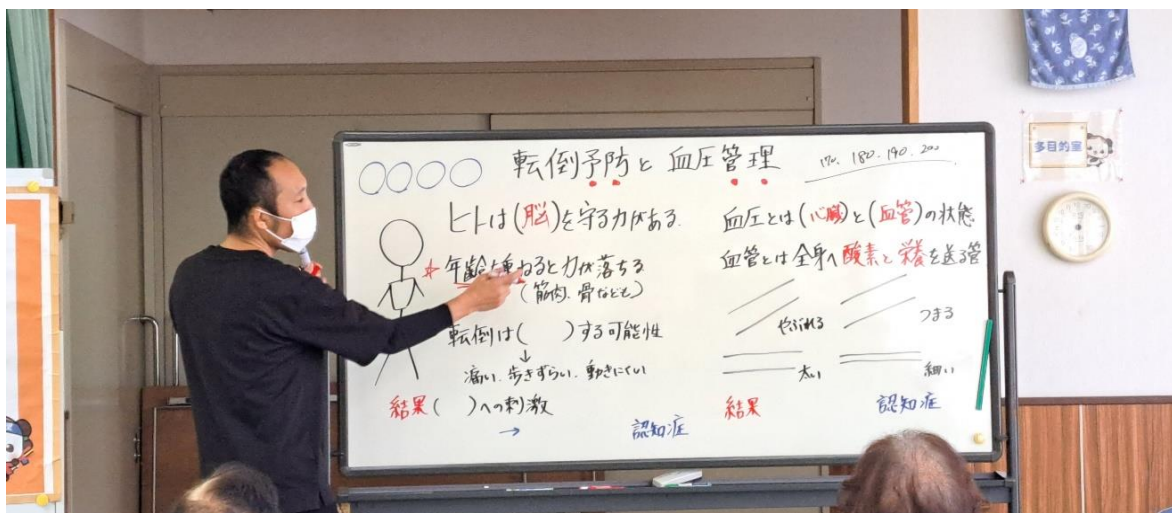 転倒予防と血圧管理
170. 180. 190. 200
ヒトは(脳)を守る力がある.
☆年齢を重ねると力が落ちる
(筋肉、骨なども)
転倒は(　　)する可能性
↓
痛い、歩きずらい、動きにくい
結果(　　)への刺激
→
認知症
血圧とは(心臓)と(血管)の状態
血管とは全身へ酸素と栄養を送る管
やぶれる
つまる
太い
細い
結果
認知症
多目的室